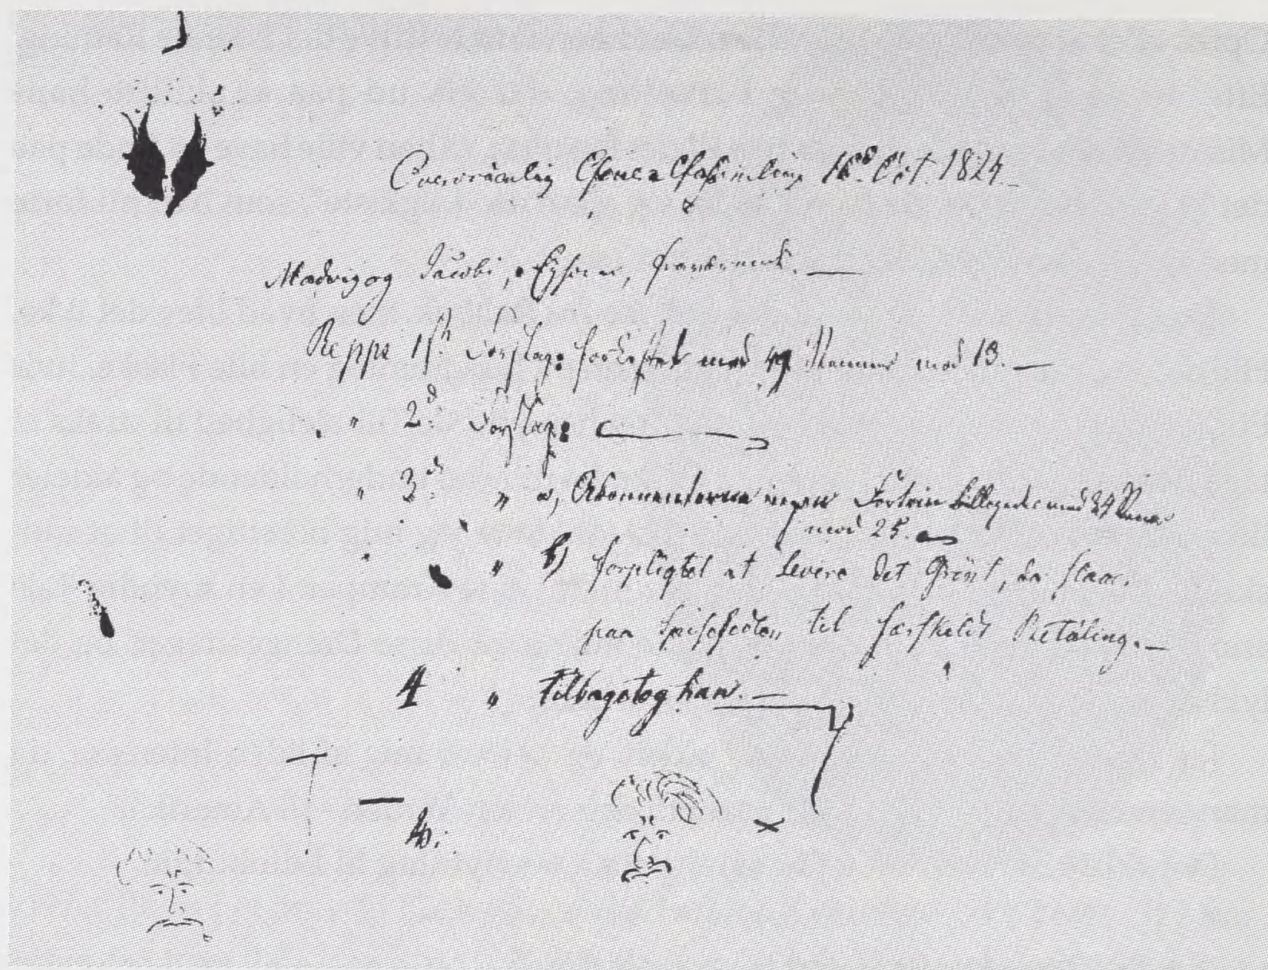 Overordentlig General Forsamling 16de Oct. 1824.
Madvig og Jacobi, Ephorer, fraværende. —
Repps 1ste Forslag: forkastet med 49 Stemmer mod 13. —
" 2d Forslag:
" 3d " a, Abonnenterne ingen Fortrin med 34 Stemmer
mod 25.
" " b) forpligtet at levere det Grönt, der staaer
paa Spisesedlen til særskildt Betaling. —
4 " tilbagetog han. —